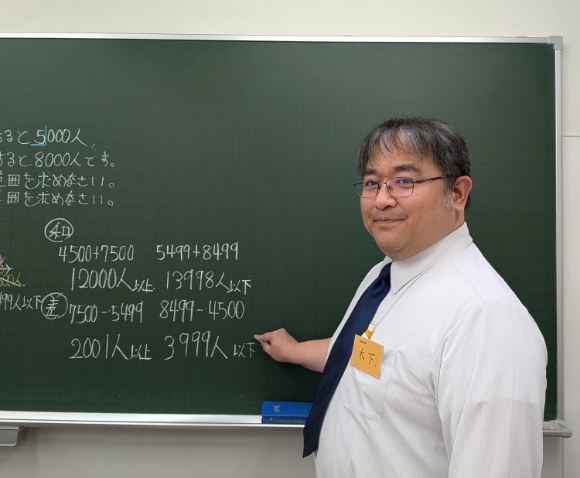 ると5000人、
ると8000人です。
囲を求めなさい。
囲を求めなさい。
和
4500+7500 5499+8499
12000人以上 13998人以下
499人以下
差
7500-5499 8499-4500
2001人以上 3999人以下
木下